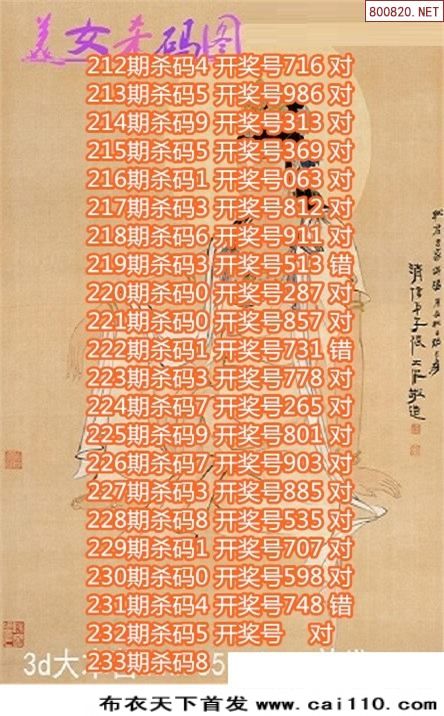 800820.NET
美女杀码图
212期杀码4 开奖号716 对
213期杀码5 开奖号986 对
214期杀码9 开奖号313 对
215期杀码5 开奖号369 对
216期杀码1 开奖号063 对
217期杀码3 开奖号812 对
218期杀码6 开奖号911 对
219期杀码3 开奖号513 错
220期杀码0 开奖号987 对
221期杀码0 开奖号857 对
222期杀码1 开奖号731 错
223期杀码3 开奖号778 对
224期杀码7 开奖号265 对
225期杀码9 开奖号801 对
226期杀码7 开奖号903 对
227期杀码3 开奖号885 对
228期杀码8 开奖号535 对
229期杀码1 开奖号707 对
230期杀码0 开奖号598 对
231期杀码4 开奖号748 错
232期杀码5 开奖号 对
233期杀码8
3d大
布衣天下首发 www.cai110.com